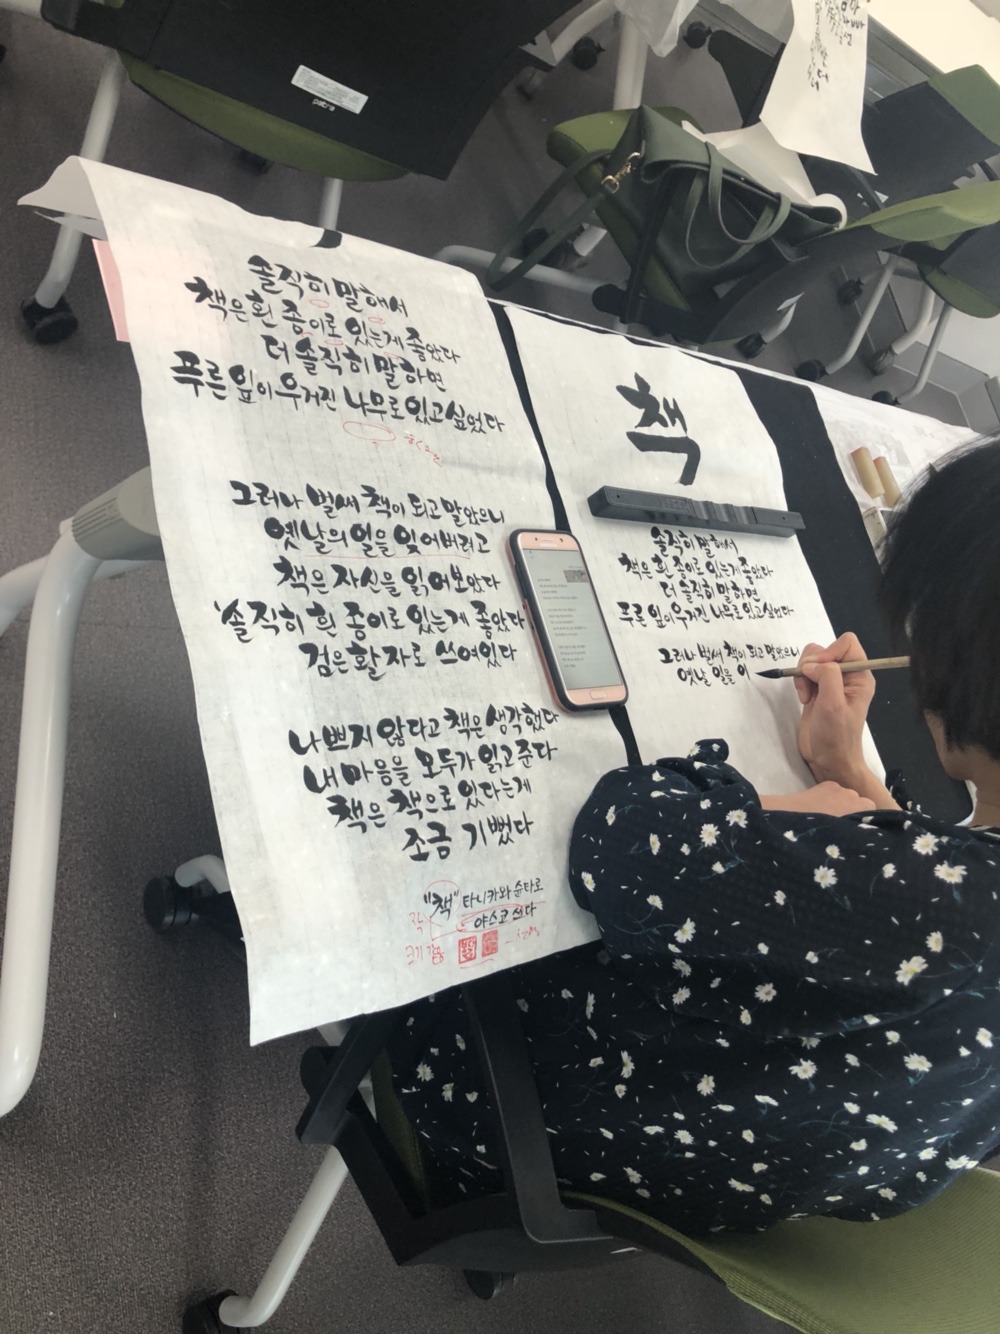 솔직히 말해서
책은 흰 종이로 있는게 좋았다
더 솔직히 말하면
푸른 잎이 우거진 나무로 있고 싶었다
그러나 벌써 책이 되고 말았으니
옛날의 일을 잊어버리고
책은 자신을 읽어보았다
'솔직히 흰 종이로 있는게 좋았다
검은 활자로 쓰여있다
나쁘지 않다고 책은 생각했다
내 마음을 모두가 읽고 준다
책은 책으로 있다는게
조금 기뻤다
"책" 타니카와 슌타로
야스코 쓰다
크기
책
솔직히 말해서
책은 흰 종이로 있는게 좋았다
더 솔직히 말하면
푸른 잎이 우거진 나무로 있고 싶었다
그러나 벌써 책이 되고 말았으니
옛날 일을 이
patra